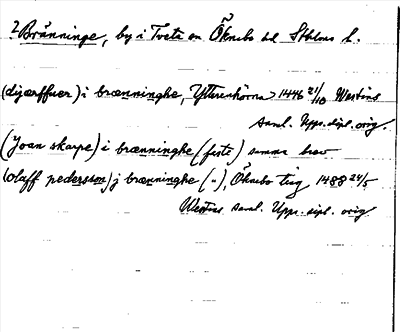 ? Bränninge, by i Tveta sn Öknebo hd Sthlms l.
(djærffuer) i brænninghe, Ytterenhörna > 1446 21/10 Westins
saml. Upps. dipl. orig.
(Joan skarpe) i brænninghe (faste) samma brev
(olaff pedersson) j brænninghe ( " ), Öknebo ting 1488 24/5
Westins saml. Upps. dipl. orig